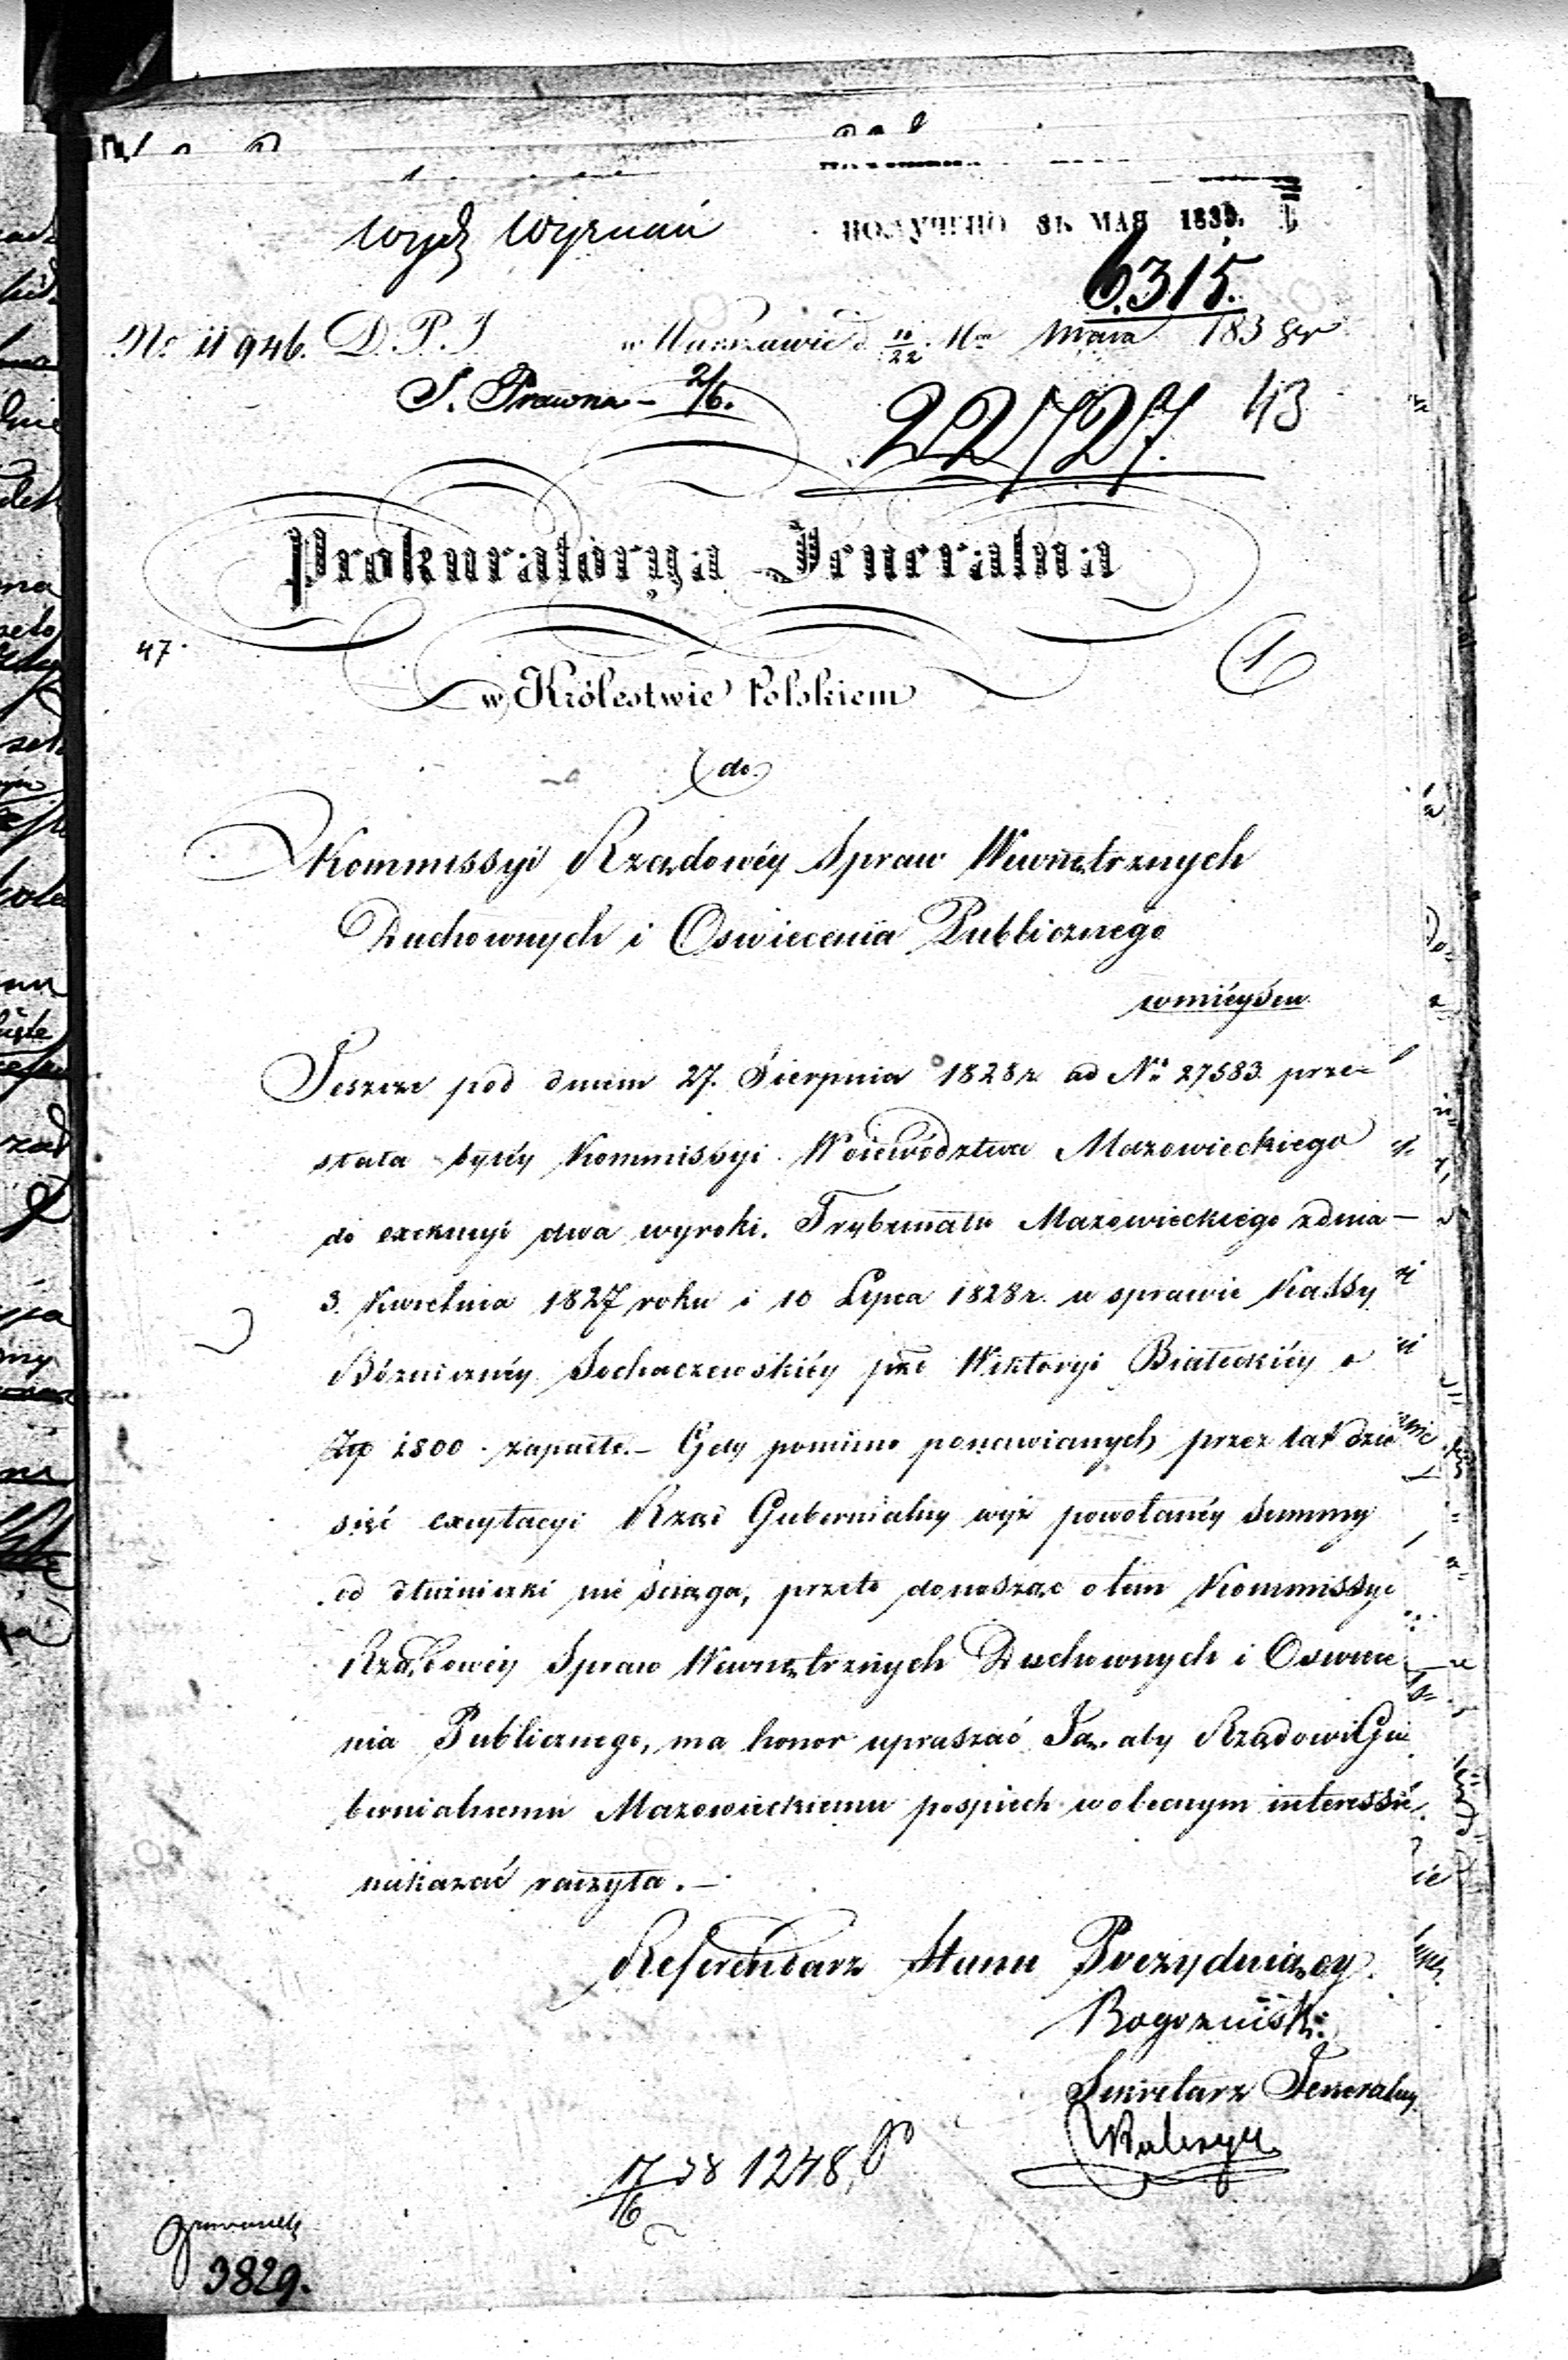 Wydz Wyznań
ПОЛУЧЕНО 31 МАЯ 1838.
6315.
No 11946. D. P. J. w Warszawie d. 10/22 Mca Maia 1838 r
S. Prawna - 2/6.
22727. 43
Prokuratorya Jeneralna
47.
1
w Królestwie Polskiem
do
Kommissyi Rządowéy Spraw Wewnętrznych
Duchownych i Oswiecenia Publicznego
w mieyscu
Jeszcze pod dniem 27. Sierpnia 1828 r. ad No 27583. prze-
słała byłéy Kommissyi Woiewództwa Mazowieckiego
do exekucyi dwa wyroki. Trybunału Mazowieckiego z dnia -
3. Kwietnia 1827 roku i 10 Lipca 1828 r. w sprawie Kassy
Bóżniczney Sochaczewskiéy pko Wiktoryi Białeckiéy o
Złp 1800 . zapadłe. - Gdy pomimo ponawianych przez lat dzie
sięć excytacyi Rząd Gubernialny wyż powołanéy Summy
od dłużniczki nie ściąga, przeto donosząc o tem Kommissyi
Rządowéy Spraw Wewnętrznych Duchownych i Oswiece
nia Publicznego, ma honor upraszać Ją. aby Rządowi Gu
bernialnemu Mazowieckiemu pospiech w obecnym interessie
nakazać raczyła. -
Referendarz Stanu Prezyduiący.
Rogoziński
Sekretarz Jeneralny
17/6 38 1248
3829.